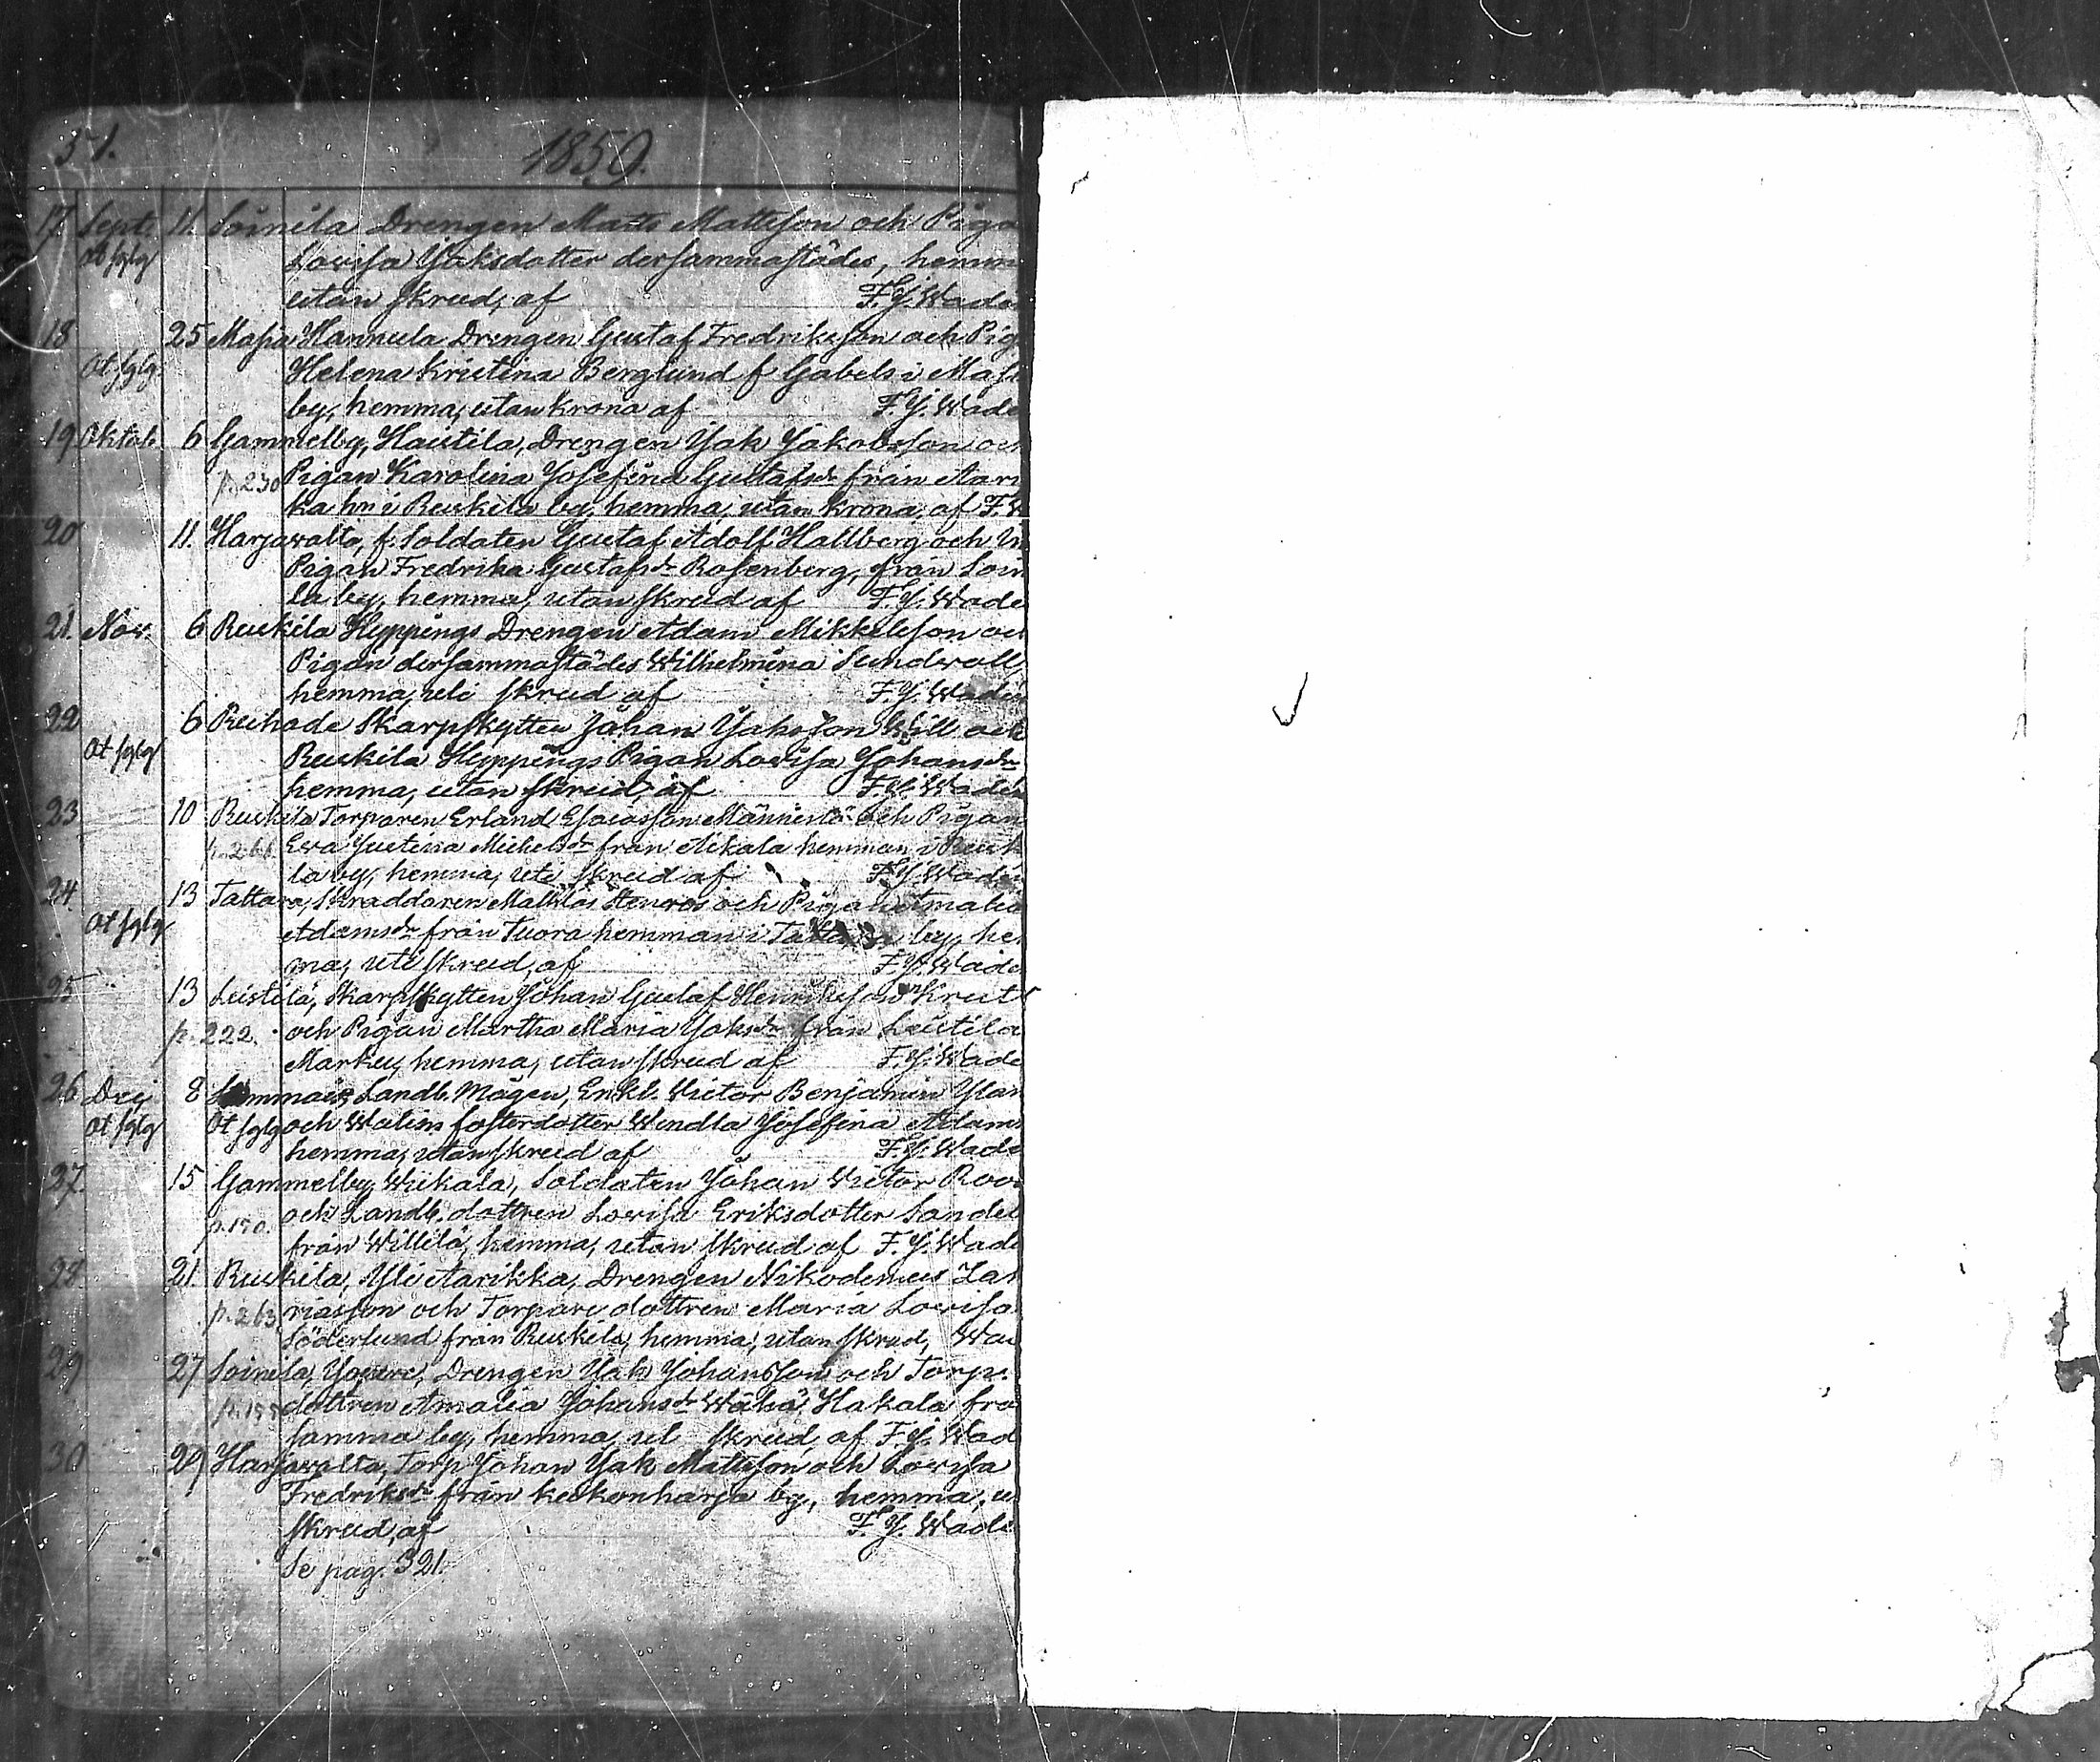 51.
1859.
17 Sept. 11. Soinila Drengen Matts Mattsson och Piga
Ot fglg Lovisa Jaksdotter dersammastädes, hemm
utan skrud, af F. J. Wade
18 25 Masia Hannula Drengen Gustaf Fredriksson och Pig
Ot fglg Helena Kristina Berglund f Gabels i Mas
by, hemma, utan krona af F. J. Wade
19 Oktob. 6 Gammelby, Hautila, Drengen Jak Jakobsson och
p. 230 Pigan Karolina Josefina Gustafsdr från Aari
ka hn i Ruskila by, hemma, utan krona, af F. W
20 11. Harjavalta, f. Soldaten Gustaf Adolf Hallberg och
Pigan Fredrika Gustafsdr Rosenberg, från Soin
la by, hemma, utan skrud af F. J. Wade
21. Nov. 6 Ruskila Hyppings Drengen Adam Mikkelsson och
Pigan dersammastädes Wilhelmina Sundvall,
hemma, uti skrud af F. J. Wade
22 6 Ruhade Skarpskytten Johan Jaksson Will och
Ot fglg Ruskila Hyppings Pigan Lovisa Johansdr
hemma, utan skrud, af F. J. Wade
23 10 Ruskila Torparen Erland Esaiasson Männistö och Pigan
p. 266. Eva Justina Michelsdr från Aikala hemman i Rusk
la by, hemma, uti skrud af F. J. Wade
24. 13 Tattara, Skraddaren Matthias Stenros och Pigan Amalia
Ot fglg Adamsdr från Tuora hemman i Tattara by, he
ma, uti skrud, af F. J. Wade
25 13 Leistilä, Skarpskytten Johan Gustaf Henriksson Krut
p. 222. och Pigan Martha Maria Jaksdr från Leistilä
Markus, hemma, utan skrud af F. J. Wade
26 Dec. 8 Sammais, Landb. Mågen, Enkl. Victor Benjamin
Ot fglg Ot fglg och Walins fosterdotter Wendla Josefina Adams
hemma, utan skrud af F. J. Wade
27. 15 Gammelby, Wiikala, Soldaten Johan Victor Roo
p. 150. och Landb. dottren Lovisa Eriksdotter Sandel
från Willilä, hemma, utan skrud af F. J. Wade
28. 21. Ruskila, Yli Aarikka, Drengen Nikodemus Za
p. 263 riasson och Torpare dottren Maria Lovisa
Söderlund från Ruskila, hemma, utan skrud, Wa
29 27 Soinila, Drengen Jak Johansson och Torp.
dottren Amalia Johansdr Wähä Hakala frå
samma by, hemma, skrud, af F. J. Wad
30 29 Harjavalta, Torp Johan Jak Mattsson och Lovisa
Fredriksdr från keskonharja by, hemma, u
skrud, af F. J. Wade
Se pag. 321.